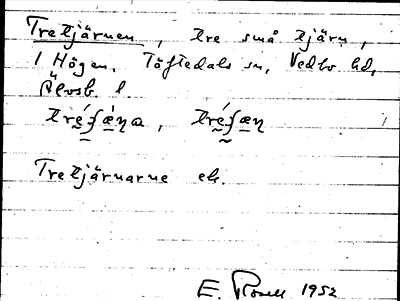 Tretjärnen, tre små tjärn,
i Högen. Töftedals sn, Vedbo hd,
Älvsb. l
Tretjärnarne el.
E. Rosell 1952